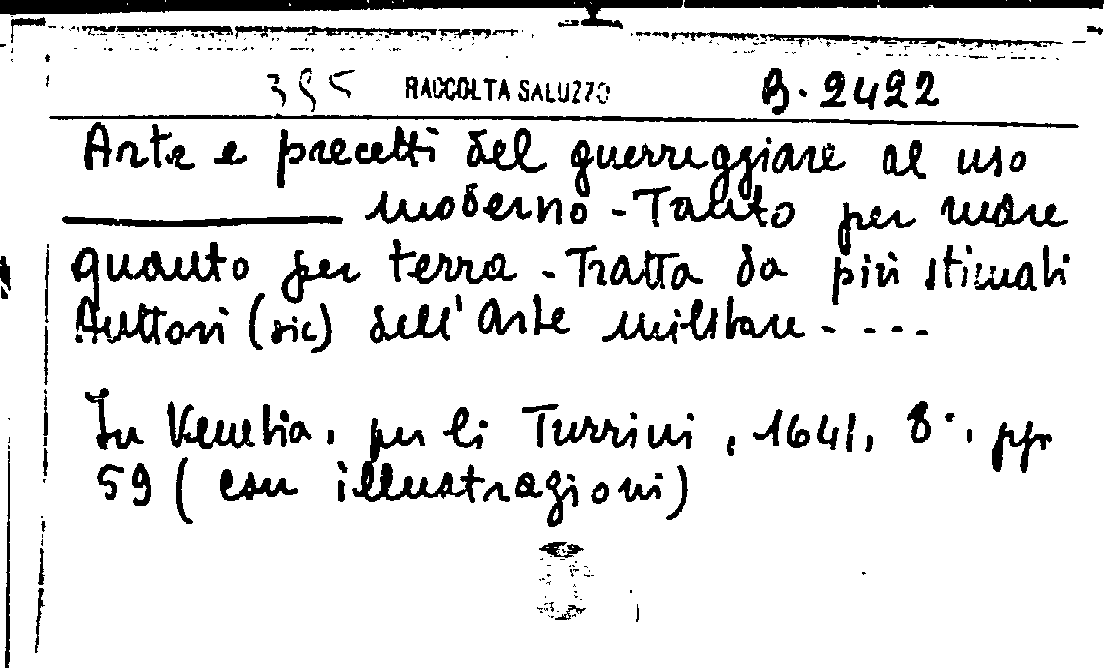 395 RACCOLTA SALUZZO B. 2422
Arte e precetti del guerreggiare al uso
moderno - Tanto per mare
quanto per terra - Tratta da più stimati
Auttori (sic) dell'Arte militare - - - -
In Venetia, per li Turrini, 1641, 8°, pp
59 (con illustrazioni)